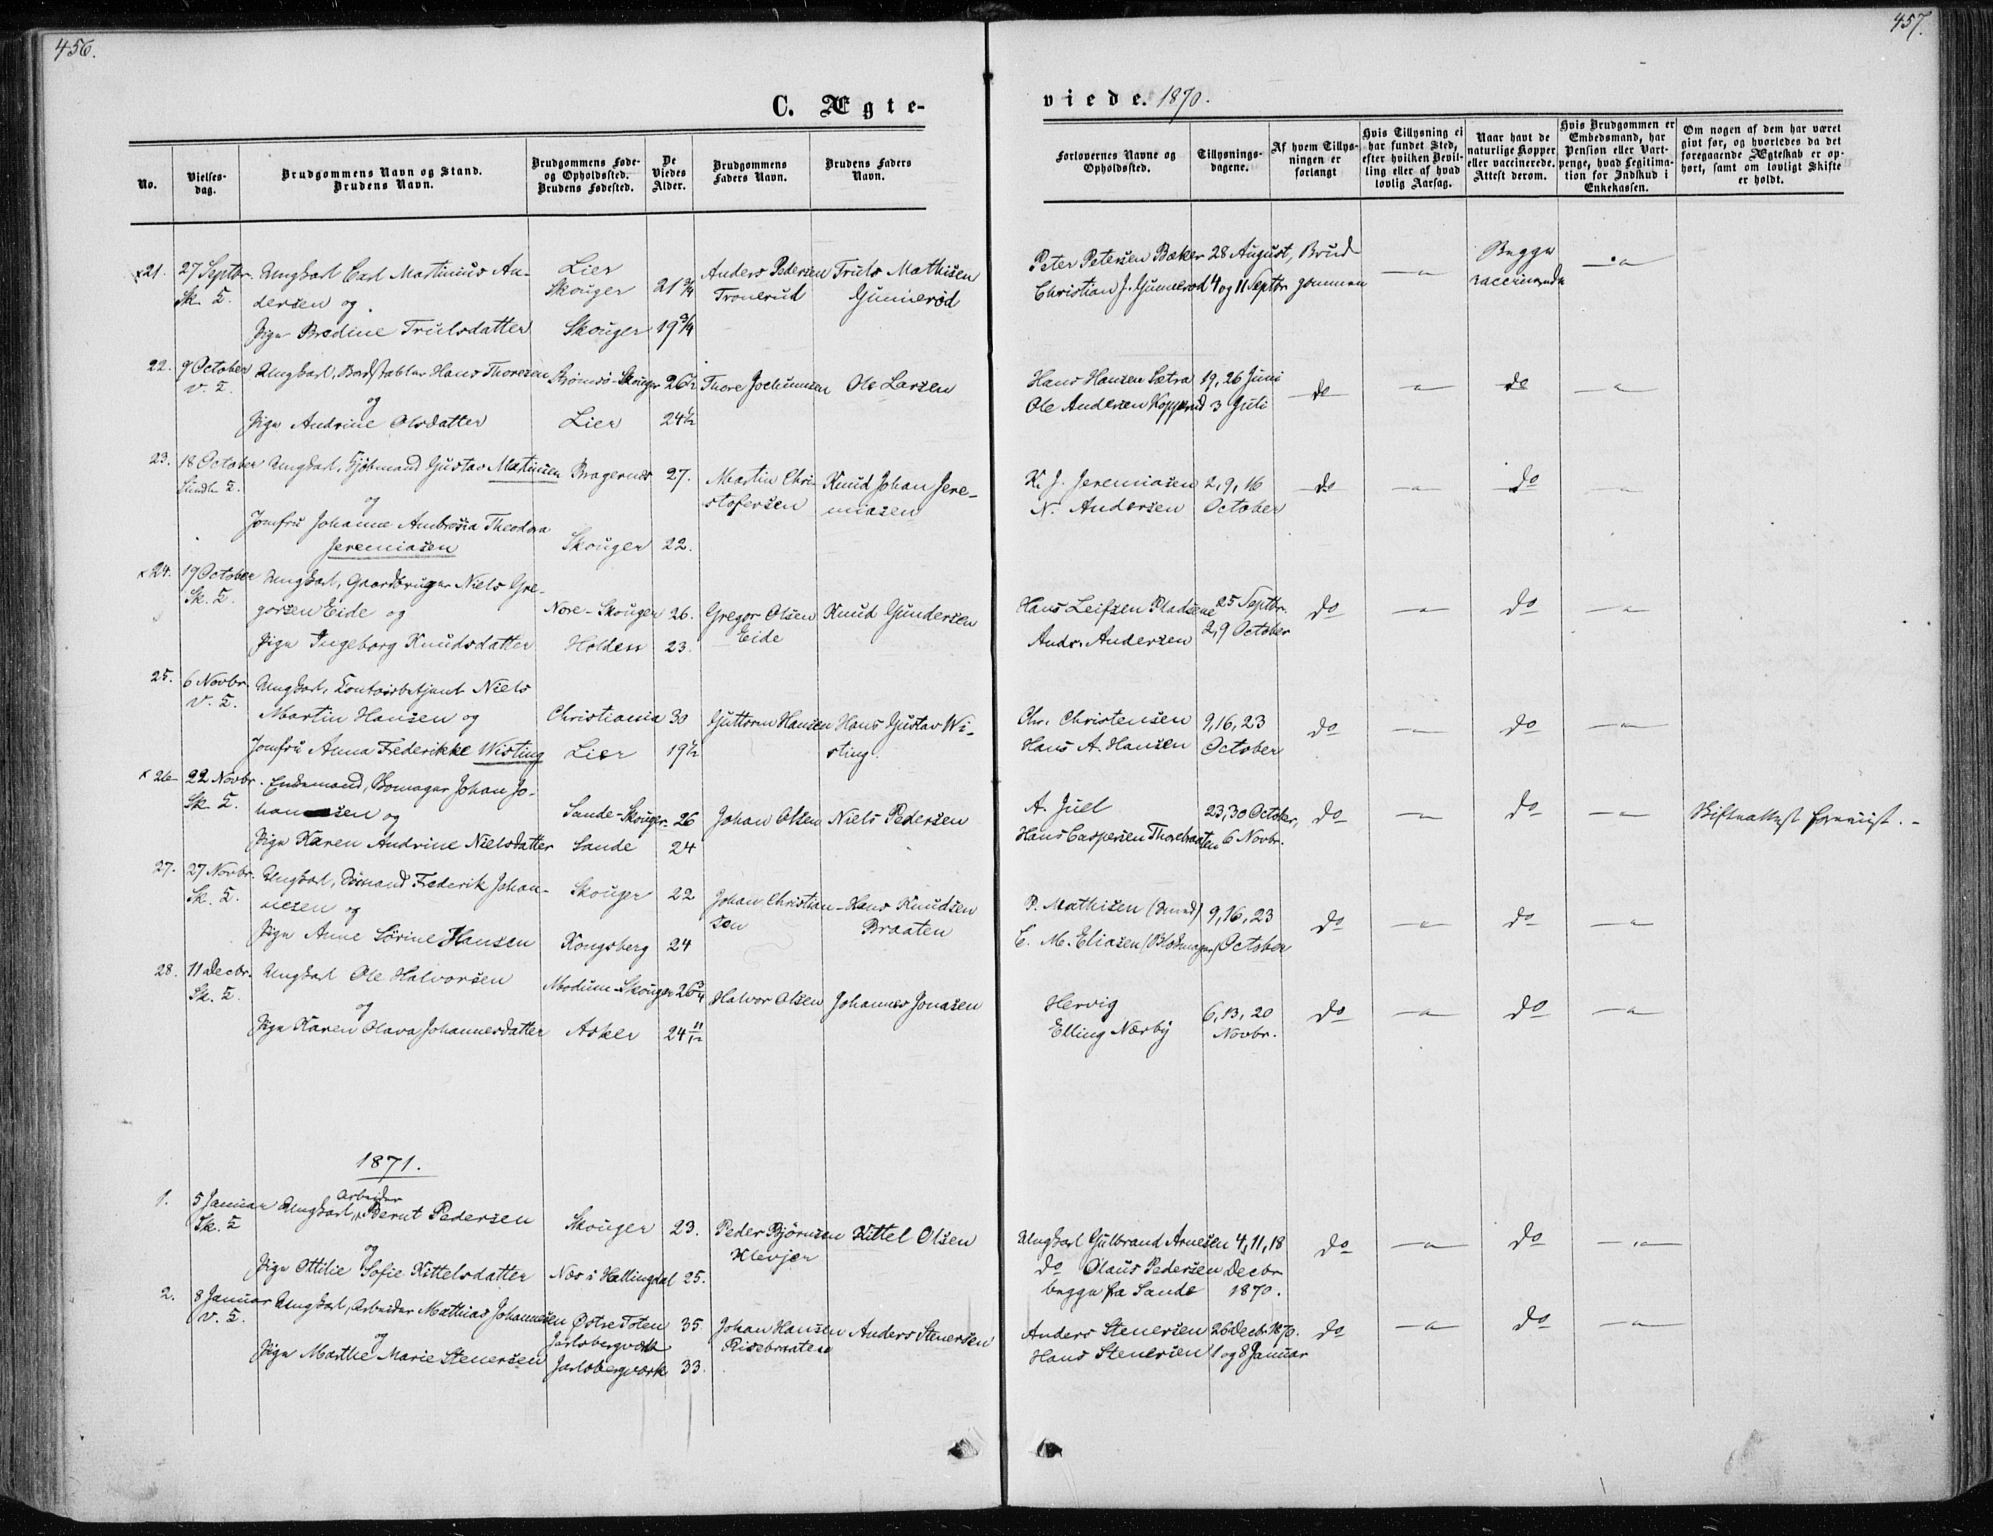 456.
C. Ægte-
No.
Vielses-
dag.
Brudgommens Navn og Stand.
Brudens Navn.
Brudgommens Føde-
og Opholdssted.
Brudens Fødested.
De
Viedes
Alder.
Brudgommens
Faders Navn.
Brudens Faders
Navn.
21. 27 Septbr. Ungkarl Carl Martinius An- Lier 21 3/4 Anders Pedersen Truls Mathisen
Sk. K. dersen og Skouger Tronerud Gunnerød
Pige Bredine Trulsdatter Skouger 19 3/4
22. 9 October Ungkarl, Hans Thoresen Strømsø-Skouger 26 1/2 Thore Jochumsen Ole Larsen
V. K. og
Pige Andrine Olsdatter Lier 24 1/2
23. 18 October Ungkarl, Kjøbmand Gustav Martinsen Bragernes 27. Martin Chri- Knud Johan Jere-
K. og stofersen miasen
Jomfru Johanne Ambrosia Theodora
Jeremiasen Skouger 22.
24. 19 October Ungkarl, Gaardbruger Niels Gre-
Sk. K. gorsen Eide og Nore-Skouger 26. Gregor Olsen Knud Gundersen
Pige Ingeborg Knudsdatter Holden 23. Eide
25. 6 Novbr. Ungkarl, Contoirbetjent Niels
V. K. Martin Hansen og Christiania 30 Guttorm Hansen Hans Gustav Wi-
Jomfru Anna Frederikke Wisting Lier 19 1/2 sting.
26 22 Novbr. Enkemand, Johan Jo-
Sk. K. hansen og Sande-Skouger 26 Johan Olsen Niels Pedersen
Pige Karen Andrine Nielsdatter Sande 24
27. 27 Novbr. Ungkarl, Sømand Frederik Johan- Skouger 22 Johan Christian- Hans Knudsen
Sk. K. nesen og sen Braaten
Pige Anne Sørine Hansen Kongsberg 24
28. 11 Decbr. Ungkarl Ole Halvorsen Modum-Skouger 26 3/4 Halvor Olsen Johannes Jonasen
Sk. K. og
Pige Karen Olava Johannesdatter Asker 24 11/12
1871.
1. 5 Januar Ungkarl, Arbeider Bernt Pedersen Skouger 23. Peder Bjørnsen Kittel Olsen
Sk. K og Klevjer
Pige Ottilie Sofie Kittelsdatter Nes i Hallingdal 25.
2. 8 Januar Ungkarl, Arbeider Mathias Johannesen Østre Toten 35. Johan Hansen Anders Stenersen
V. K. og Jarlsbergværk Risebraatene
Pige Marthe Marie Stenersen Jarlsbergværk 33.
457.
viede. 1870.
Forlovernes Navne og
Opholdssted.
Tillysnings-
dagene.
Af hvem Tillys-
ningen er
forlangt
Hvis Tillysning ei
har fundet Sted,
efter hvilken Bevil-
ling eller af hvad
lovlig Aarsag.
Naar havt de
naturlige Kopper
eller vaccinerede.
Attest derom.
Hvis Brudgommen er
Embedsmand, har
Pension eller Vart-
penge, hvad Legitima-
tion for Indskud i
Enkekassen.
Om nogen af dem har været
givt før, og hvorledes da det
foregaaende Ægteskab er op-
hørt, samt om lovligt Skifte
er holdt.
Peter Petersen Bæker 28 August, Brud- Begge
Christian J. Gunnerød 4 og 11 Septbr. gommen vaccinerede
Hans Hansen Sætra 19, 26 Juni do do
Ole Andersen Kopperud 3 Juli
K. J. Jeremiasen 2, 9, 16 do do
N. Andersen October
Hans Leifsen Pladsene 25 Septbr. do do
Andr. Andersen 2, 9 October
Chr. Christensen 9, 16, 23 do do
Hans A. Hansen October
A. Juel 23, 30 October, do do Skifteattest forevist.
Hans Caspersen Thorebraaten 6 Novbr.
P. Mathisen (Smed) 9, 16, 23 do do
C. M. Eliasen October
Hervig 6, 13, 20 do do
Elling Nærby Novbr.
Ungkarl Gulbrand Arnesen 4, 11, 18 do do
do Olaus Pedersen Decbr
begge fra Sande 1870.
Anders Stenersen 26 Decbr 1870. do do
Hans Stenersen 1 og 8 Januar